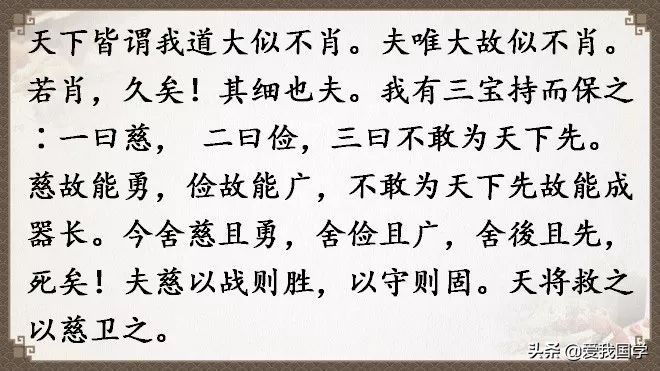 天下皆谓我道大似不肖。夫唯大故似不肖。
若肖，久矣！其细也夫。我有三宝持而保之
：一曰慈， 二曰俭，三曰不敢为天下先。
慈故能勇，俭故能广，不敢为天下先故能成
器长。今舍慈且勇，舍俭且广，舍後且先，
死矣！夫慈以战则胜，以守则固。天将救之
以慈卫之。
头条 @爱我国学